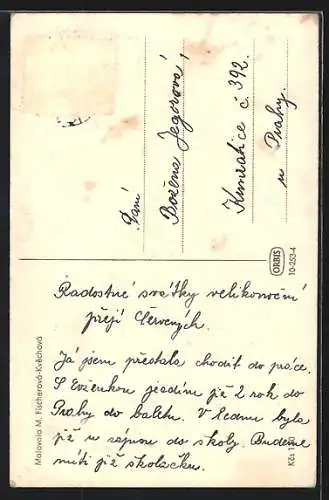 Paní
Božena Jegorová
Kunratice č. 392.
u Prahy.
ORBIS
10-253-4
Radostné svátky velikonoční
přejí Červených.
Já jsem přestala chodit do práce.
S Evženkou jezdíme již 2 rok do
Prahy do baletu. V lednu byla
již u zápisu do školy. Budeme
míti již školačku.
Malovala M. Fischerová-Kvěchová
Kčs